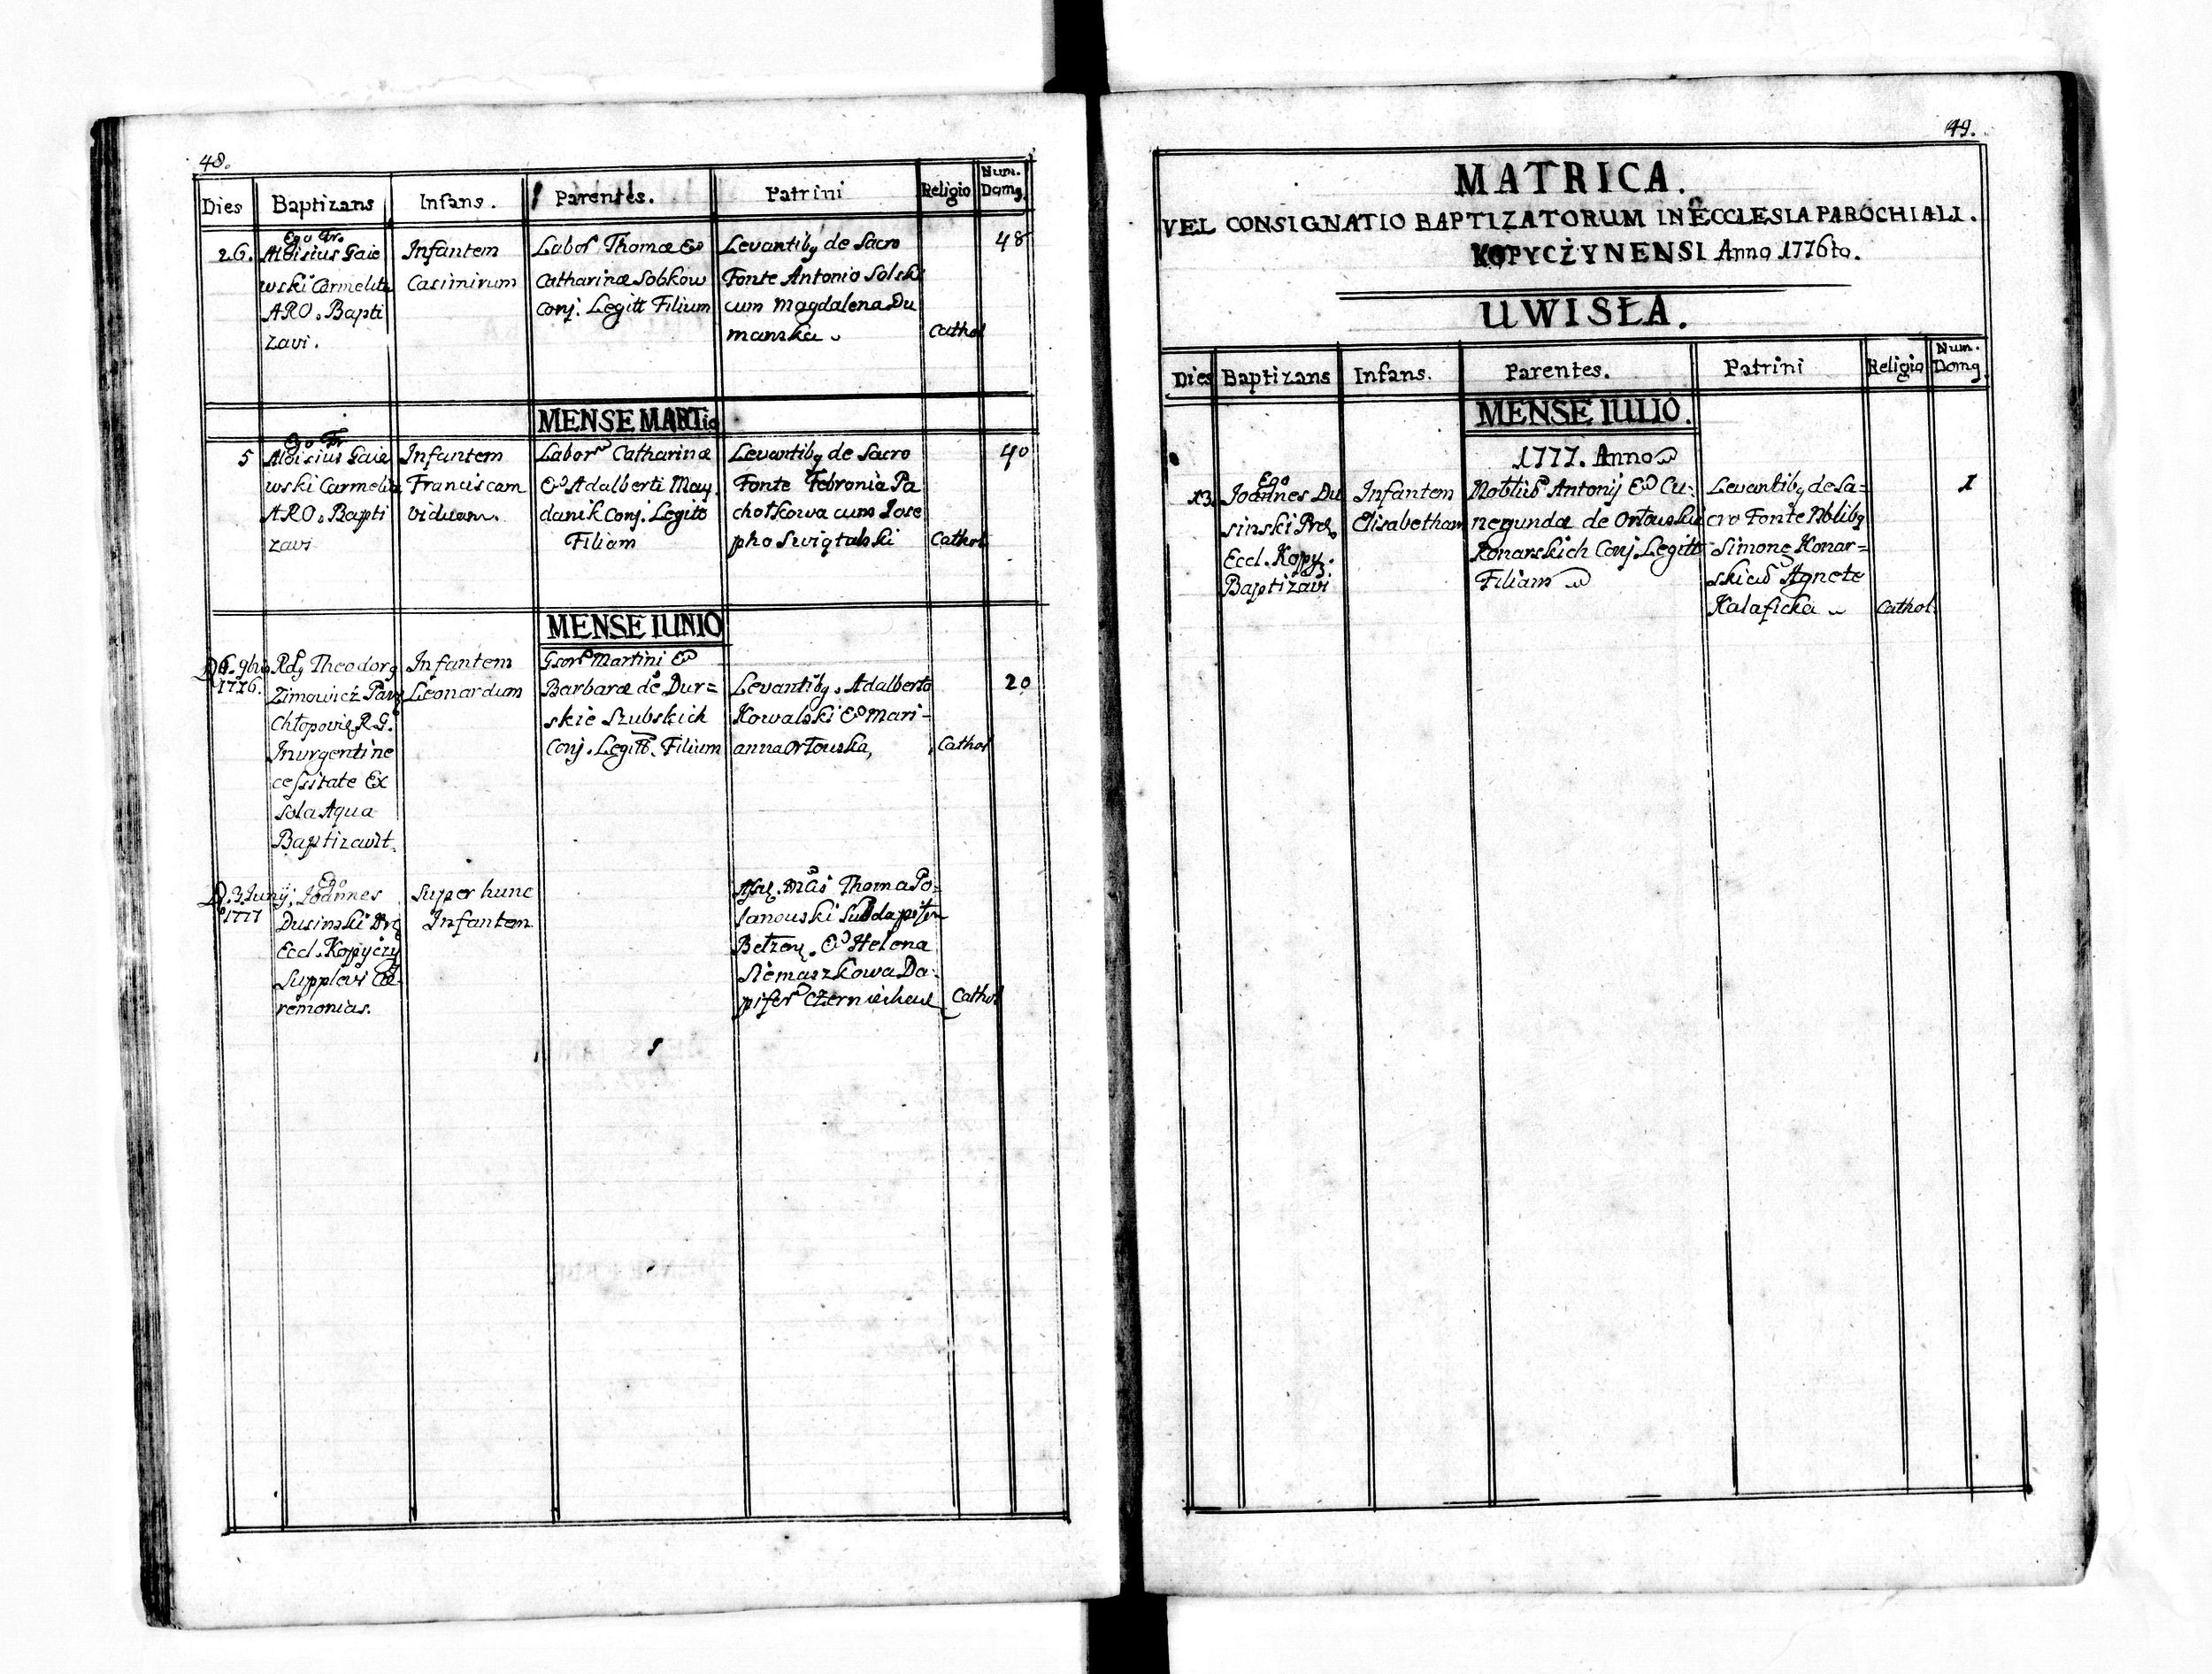 48.
Dies Baptizans Infans. Parentes. Patrini Religio Num. Domq.
26.
Ego Fr.
Aloisius Gaie
wski Carmelita
ARO. Bapti
zavi.
Infantem
Casimirum
Labor Thomæ &
Catharinæ Sobkow
Conj. Legitt Filium
Levantibq de Sacro
Fonte Antonio Solski
cum Magdalena Du
manska
Cathol
48
MENSE MARTio
5
Ego Fr
Aloisius Gaie
wski Carmelita
ARO. Bapti
zavi
Infantem
Franciscam
viduam.
Labor Catharinæ
& Adalberti May
danik Conj. Legitt
Filiam
Levantibq de Sacro
Fonte Febronia Pa
chołkowa cum Jose
pho Swiątalski
Cathol
40
MENSE IUNIO
D 6. 9bris
1776.
Rdq Theodorq
Zimowicz Par
Chłopovię R. G.
In urgenti ne
cessitate Ex
sola Aqua
Baptizavit.
Infantem
Leonardum
Martini &
Barbaræ de Dur=
skie Szubskich
Conj. Legitt. Filium
Levantibq. Adalberto
Kowalski & Mari-
anna Orłouska,
Cathol
20
D. 3 Junij
1777
Ego
Joannes
Dusinski
Eccl. Kopyczy
Supplevi Cæ
remonias.
Super hunc
Infantem
Thoma Po-
Subdapifer
Bełzen. & Helena
Siemaszkowa Da-
pifer Czerniehow
Cathol
49.
MATRICA.
VEL CONSIGNATIO BAPTIZATORUM IN ECCLESIA PAROCHIALI.
KOPYCŻYNENSI Anno 1776to.
UWISŁA.
Dies Baptizans Infans. Parentes. Patrini Religio Num. Domq.
MENSE IULIO.
1777. Anno
13.
Ego
Joannes Du
sinski Præ
Eccl. Kopy.
Baptizavi
Infantem
Elisabetham
Antonij & Cu-
negundæ de Orłouskie
Konarskich Conj. Legitt
Filiam
Levantibq de Sa=
cro Fonte Nblibq
Simone Konar=
ski & Agnete
Kalaficka
Cathol.
1